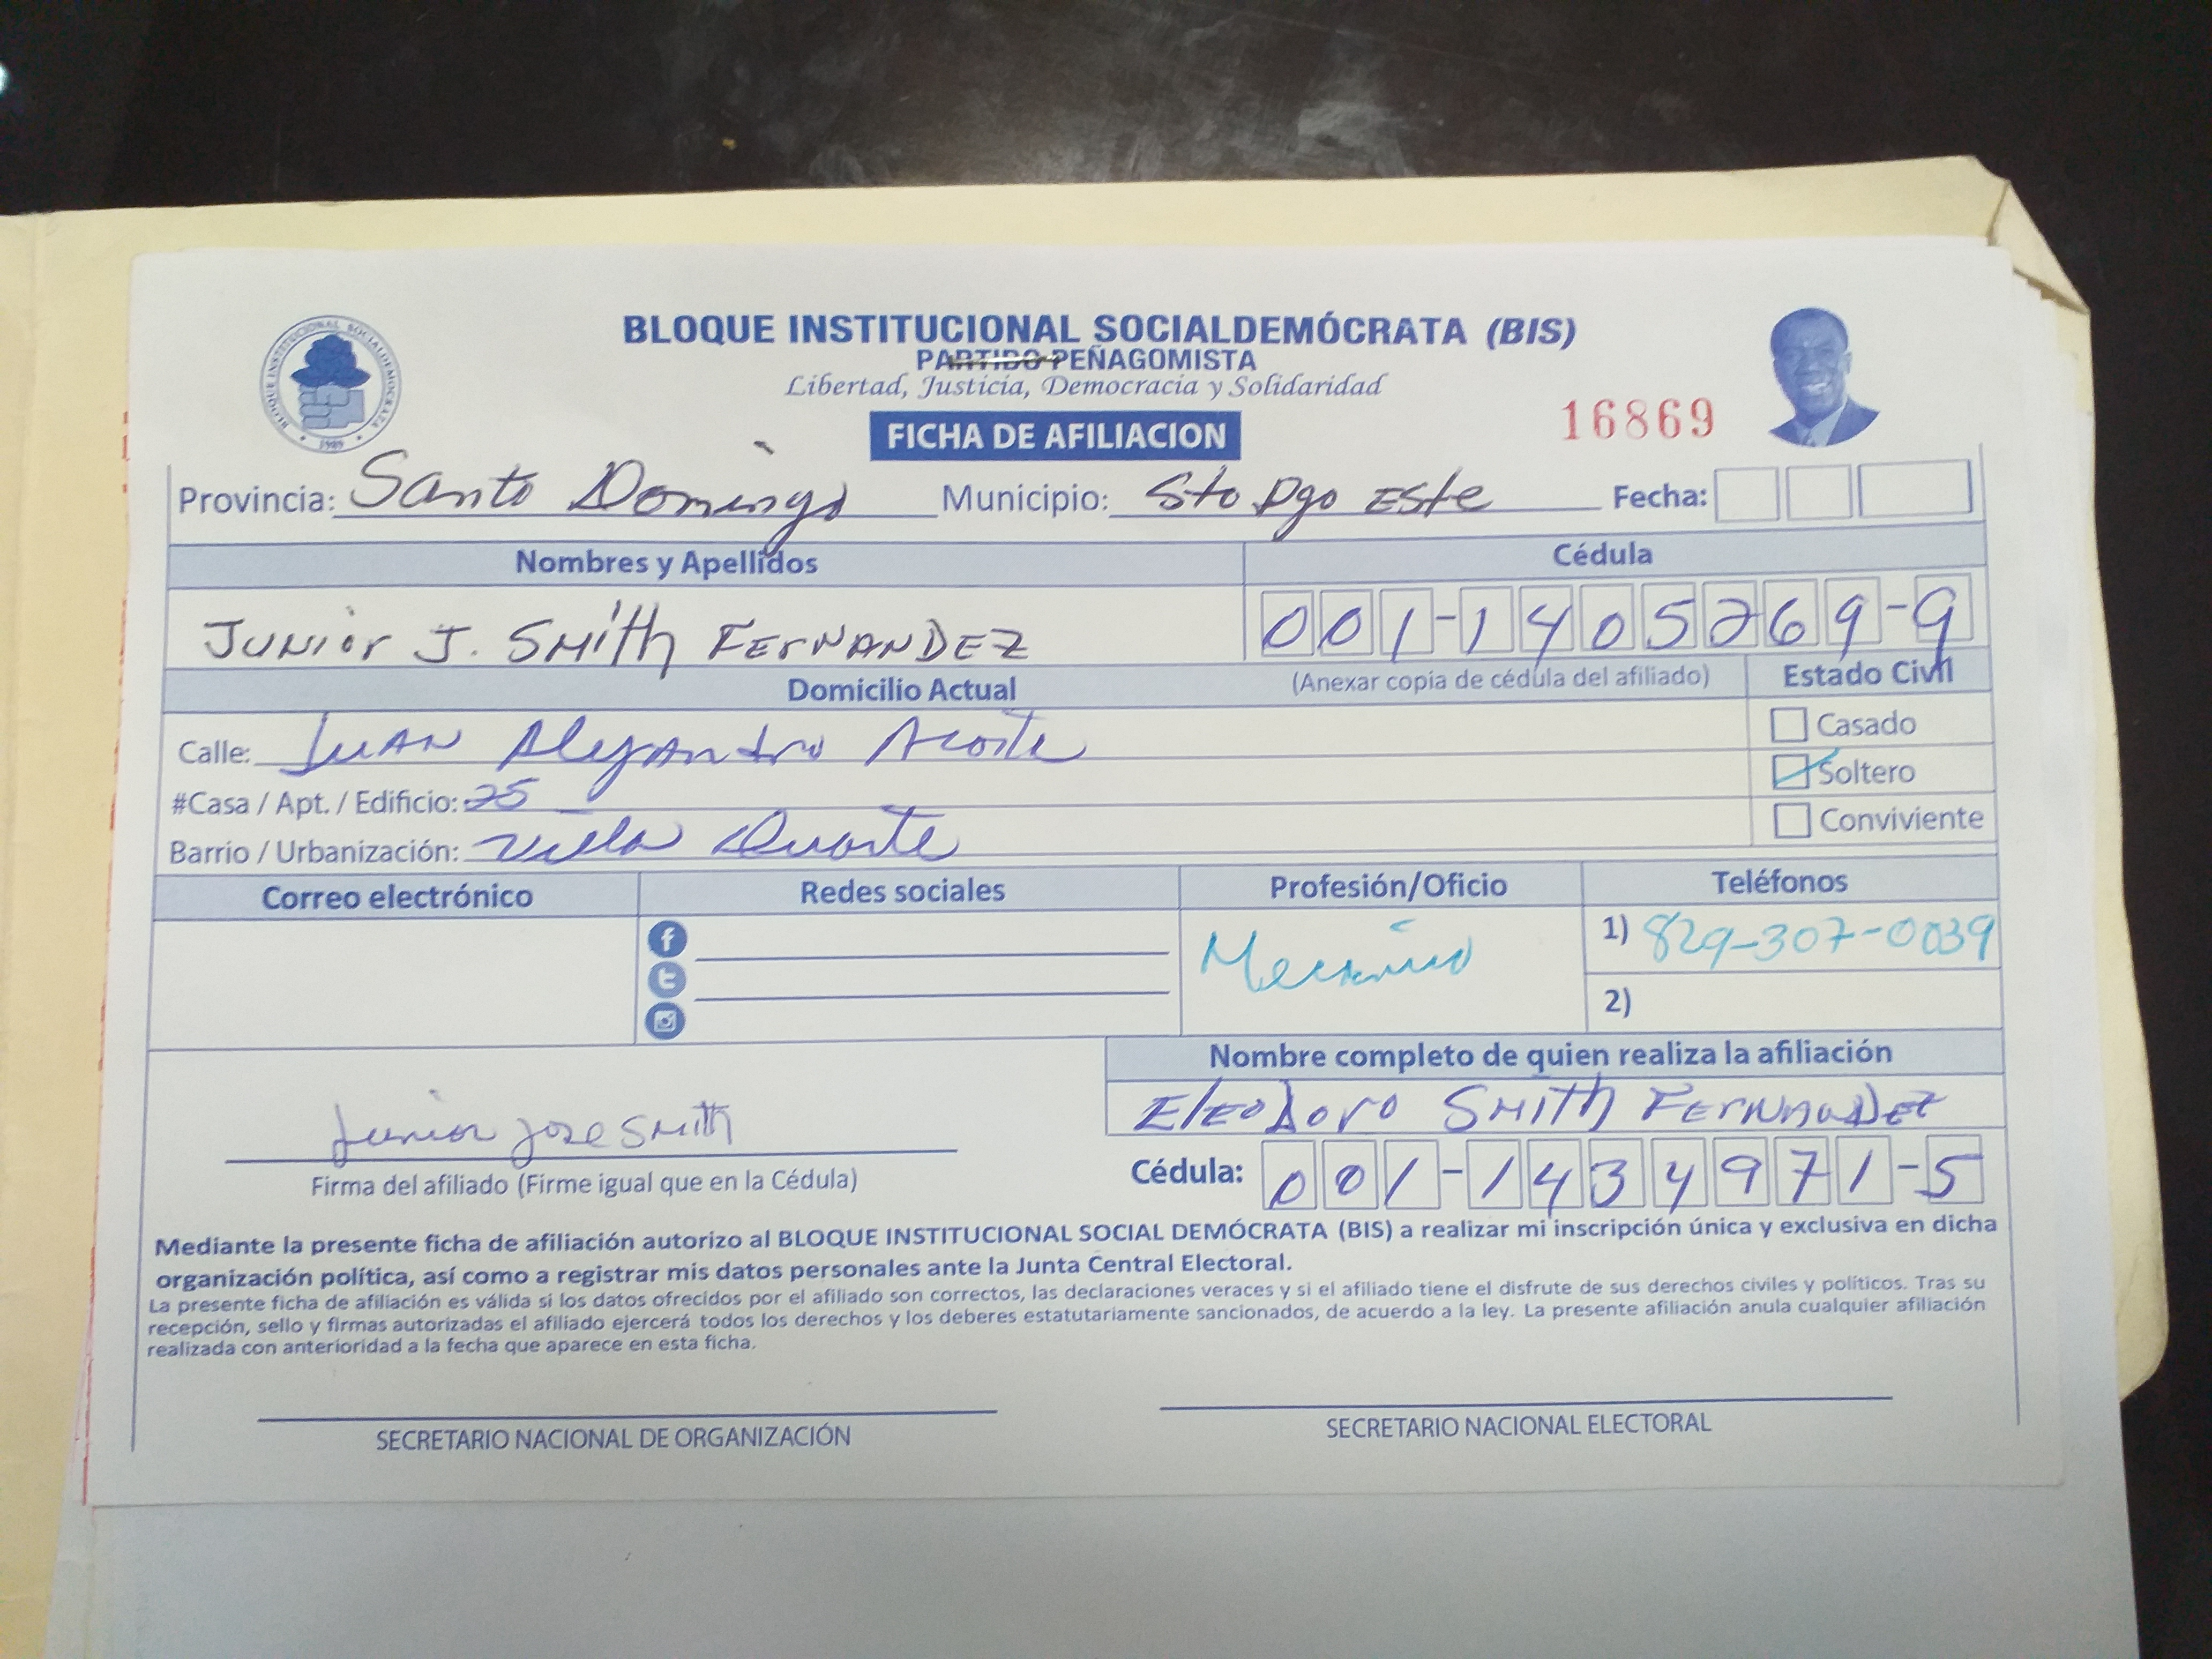 BLOQUE INSTITUCIONAL SOCIALDEMÓCRATA (BIS)
PARTIDO PEÑAGOMISTA
Libertad, Justicia, Democracia y Solidaridad
BLOQUE INSTITUCIONAL SOCIALDEMOCRATA
1989
FICHA DE AFILIACION
16869
Provincia: Santo Domingo Municipio: Sto Dgo Este Fecha:
Nombres y Apellidos Cédula
Junior J. Smith Fernandez 001-1405269-9
Domicilio Actual (Anexar copia de cédula del afiliado) Estado Civil
Calle: Juan Alejandro Acosta Casado
#Casa / Apt. / Edificio: 25 Soltero
Barrio / Urbanización: Villa Duarte Conviviente
Correo electrónico Redes sociales Profesión/Oficio Teléfonos
Mecanico 1) 829-307-0039
2)
Nombre completo de quien realiza la afiliación
Eleodoro Smith Fernandez
Junior Jose Smith
Firma del afiliado (Firme igual que en la Cédula) Cédula: 001-1434971-5
Mediante la presente ficha de afiliación autorizo al BLOQUE INSTITUCIONAL SOCIAL DEMÓCRATA (BIS) a realizar mi inscripción única y exclusiva en dicha
organización política, así como a registrar mis datos personales ante la Junta Central Electoral.
La presente ficha de afiliación es válida si los datos ofrecidos por el afiliado son correctos, las declaraciones veraces y si el afiliado tiene el disfrute de sus derechos civiles y políticos. Tras su
recepción, sello y firmas autorizadas el afiliado ejercerá todos los derechos y los deberes estatutariamente sancionados, de acuerdo a la ley. La presente afiliación anula cualquier afiliación
realizada con anterioridad a la fecha que aparece en esta ficha.
SECRETARIO NACIONAL DE ORGANIZACIÓN SECRETARIO NACIONAL ELECTORAL